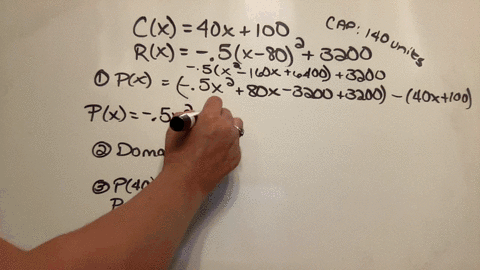 C(x) = 40x + 100
CAP: 140 units
R(x) = -.5(x-80)² + 3200
-.5(x² - 160x + 6400) + 3200
① P(x) = (-.5x² + 80x - 3200 + 3200) - (40x + 100)
P(x) = -.5x²
②
③ P(40)
P